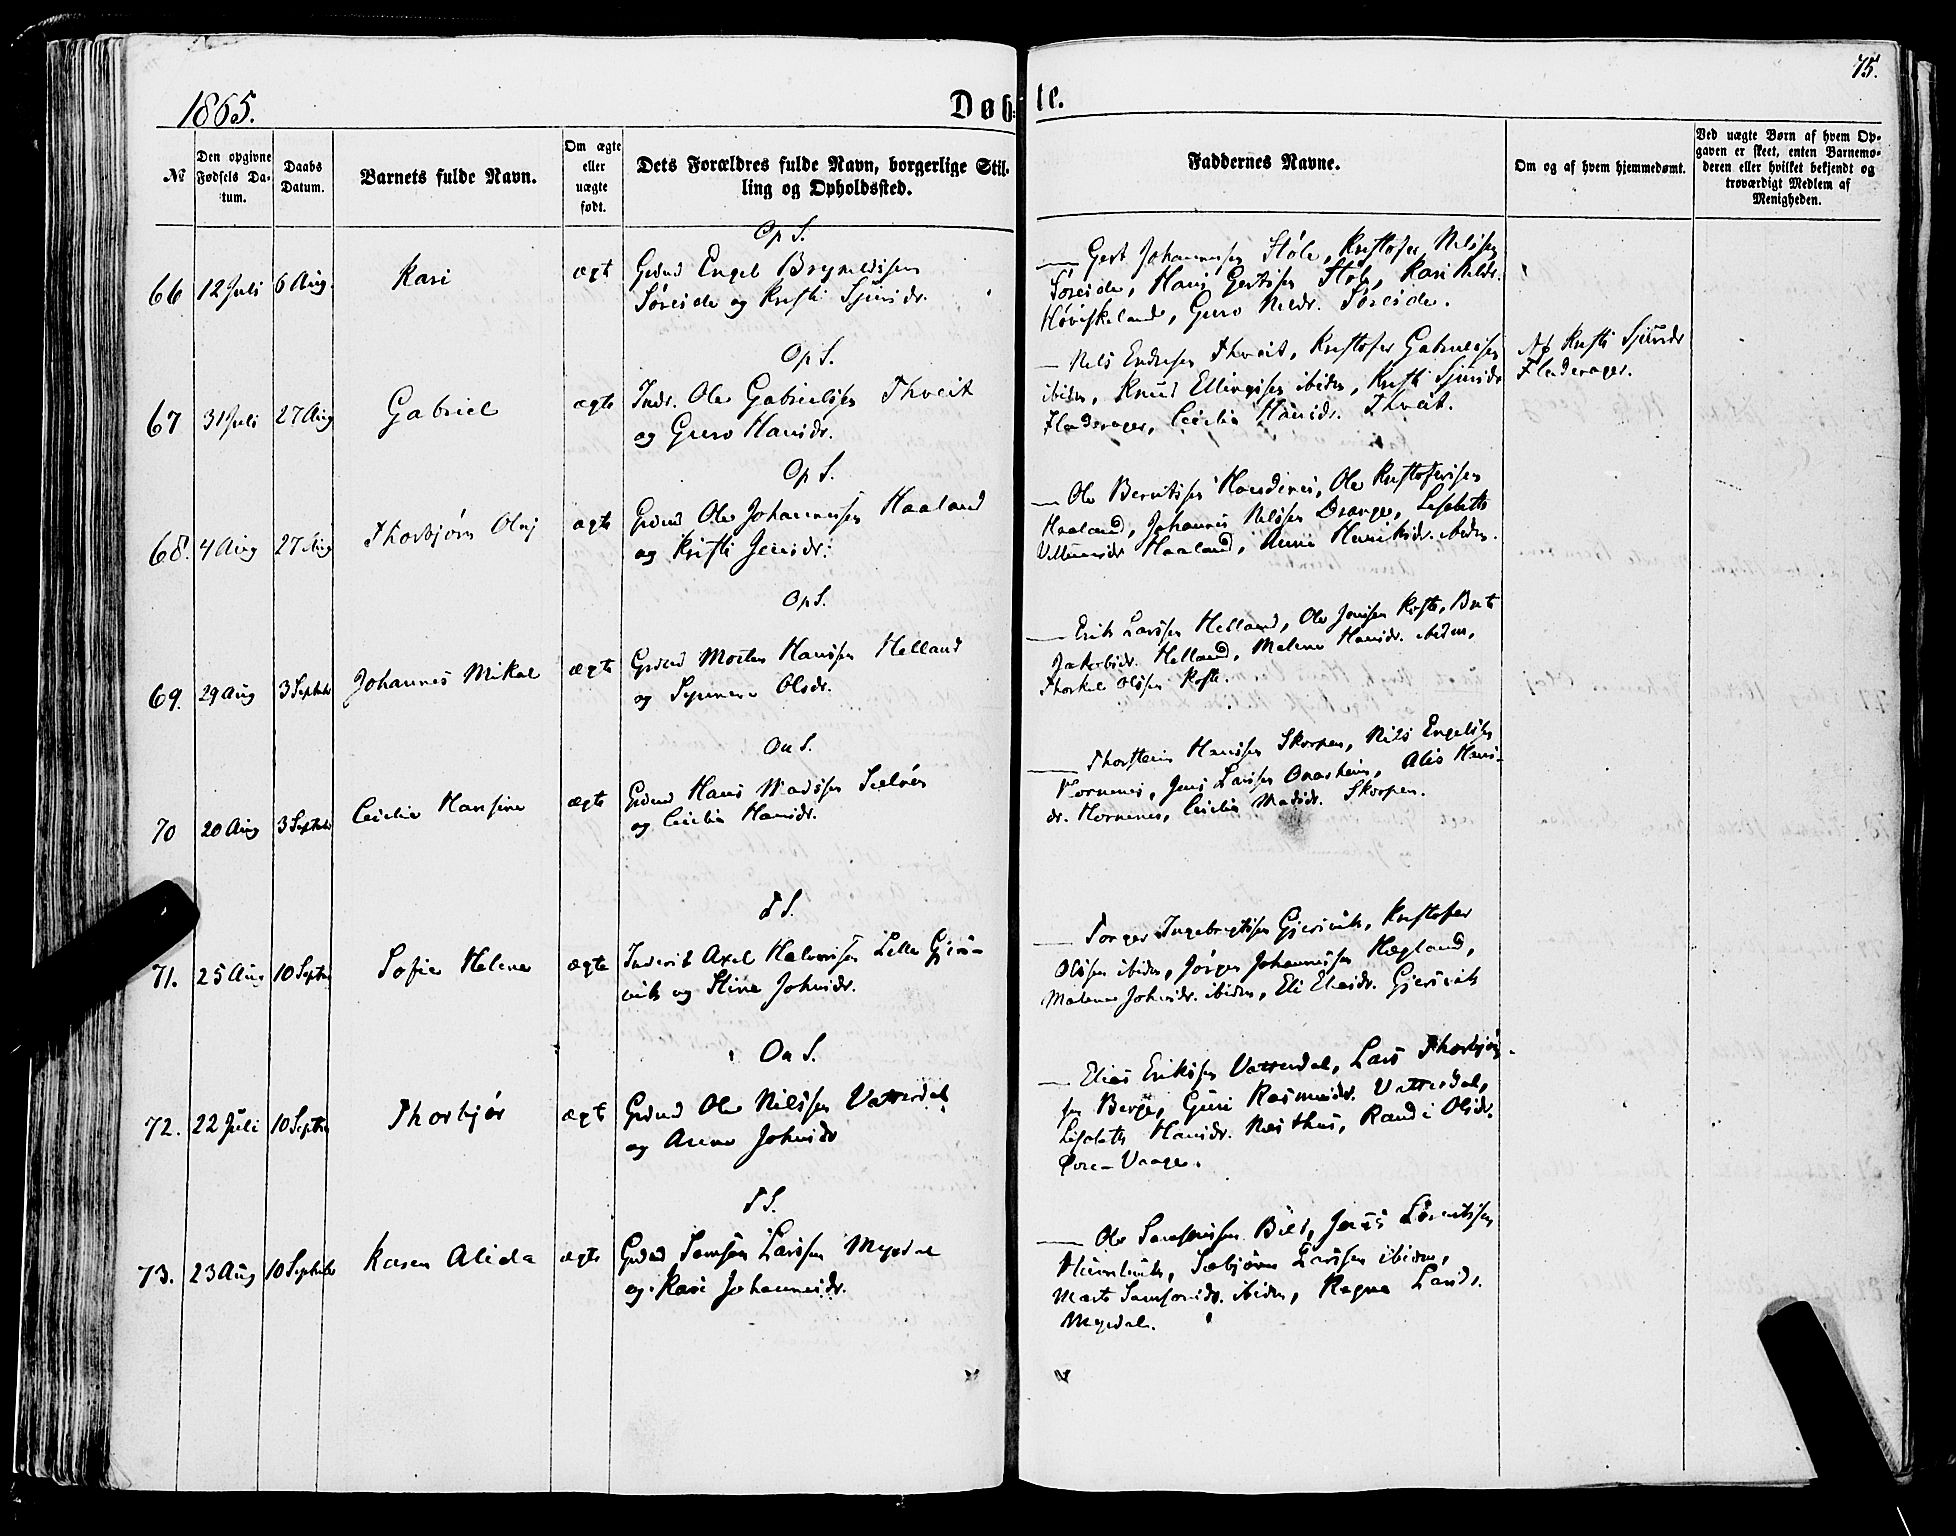 75.
1865.
Døbte.
№
Den opgivne Fødsels Datum.
Daabs Datum.
Barnets fulde Navn.
Om ægte eller uægte født.
Dets Forældres fulde Navn, borgerlige Stilling og Opholdssted.
Faddernes Navne.
Om og af hvem hjemmedømt.
Ved uægte Børn af hvem Opgaven er skeet, enten Barnemoderen eller hvilket bekjendt og troværdigt Medlem af Menigheden.
Op S.
66 12 Juli 6 Aug. Kari ægt
Grdmd Engel Brynildsen
Søreide og Kristi Sjursdr.
Gert Johannesen Støle, Kristofer Nilssen
Søreide, Hans Gertsen Støle, Kari Nilsdr.
Høviskeland, Guro Nilsdr. Søreide.
Op S.
67 31 Juli 27 Aug Gabriel ægte
Indr. Ole Gabrielsen Thveit
og Guro Hansdr.
Nils Endresen Thveit, Kristofer Gabrielsen
ibidem, Knud Ellingsen ibidem, Kristi Sjursdr
Fladerager, Cecilia Hansdr. Thveit.
Af Kristi Sjursdr
Fladerager.
Op S.
68. 4 Aug 27 Aug Thorbjørn Olaj ægte
Grdmd Ole Johannessen Haaland
og Kristi Jensdr.
Ole Berntsen Handenes, Ole Kristofersen
Haaland, Johannes Nilssen Drange, Lisabeth
Villumsdr Haaland, Anna Henriksdr. ibidem.
Op S.
69. 29 Aug 3 Septbr Johannes Mikal ægte
Grdmd Morten Hansen Helland
og Synneva Olsdr.
Erik Larsen Helland, Ole Jonsen Røfte, Brita
Jakobsdr. Helland, Malena Hansdr. ibidem,
Thorkel Olssen Røfte.
On S.
70 20 Aug 3 Septbr Cecilia Hansine ægte
Grdmd Hans Madssen Sælnes
og Cecilia Hansdr.
Thorstein Hanssen Skorpen, Nils Engelsen
Hornenes, Jens Larssen Onarheim, Alis Hans-
dr. Hornenes, Cecilia Madsdr. Skorpen.
T S.
71. 25 Aug 10 Septbr Sofie Helene ægte
Inderst Axel Halvorsen Lille Gjers-
vik og Stina Johnsdr.
Torger Ingebrigtsen Gjersvik, Kristofer
Olssen ibidem, Jørgen Johannessen Hægland,
Malena Johnsdr. ibidem, Eli Eliasdr. Gjersvik
On S.
72. 22 Juli 10 Septbr Thorbjør ægt
Grdmd Ole Nilssen Vatterdal
og Anna Johnsdr
Elias Eriksen Vatterdal, Lars Thorbjørn-
sen Berge, Guri Rasmusdr. Vatterdal,
Lisabeth Hansdr. Næsthus, Randi Olsdr.
Øvre-Vaage.
T S.
73. 23 Aug 10 Septbr Karen Alida ægte
Grdmd Samson Larssen Myrdal
og Kari Johannesdr.
Ole Samsonsen
Sæbjørn Larssen ibidem,
Marta Samsonsdr. ibidem, Ragna Larsdr.
Myrdal.